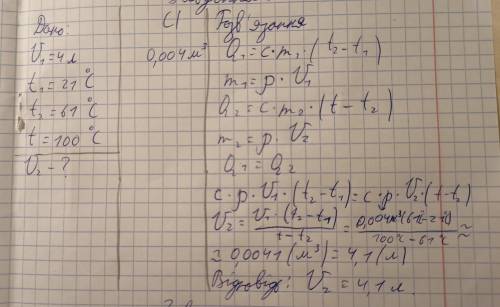 Дано:
V₁ = 4 л
t₁ = 21 °C
t₂ = 61 °C
t = 100 °C
V₂ - ?
СІ
0,004 м³
Розв'язання
Q₁ = c · m₁ · (t₂ - t₁)
m₁ = ρ · V₁
Q₂ = c · m₂ · (t - t₂)
m₂ = ρ · V₂
Q₁ = Q₂
c · ρ · V₁ · (t₂ - t₁) = c · ρ · V₂ · (t - t₂)
V₂ = V₁ · (t₂ - t₁) / t - t₂ = 0,004 м³ (61 - 21) / 100°C - 61°C ≈
≈ 0,0041 (м³) = 4,1 (л)
Відповідь: V₂ = 4,1 л.